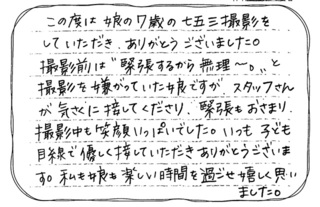 この度は娘の7歳の七五三撮影を
していただき、ありがとうございました。
撮影前は"緊張するから無理〜。"と
撮影を嫌がっていた娘ですが、スタッフさん
が気さくに接してくださり、緊張もおさまり、
撮影中も笑顔いっぱいでした。いつも子ども
目線で優しく接していただきありがとうございま
す。私も娘も楽しい時間を過ごせ嬉しく思い
ました。